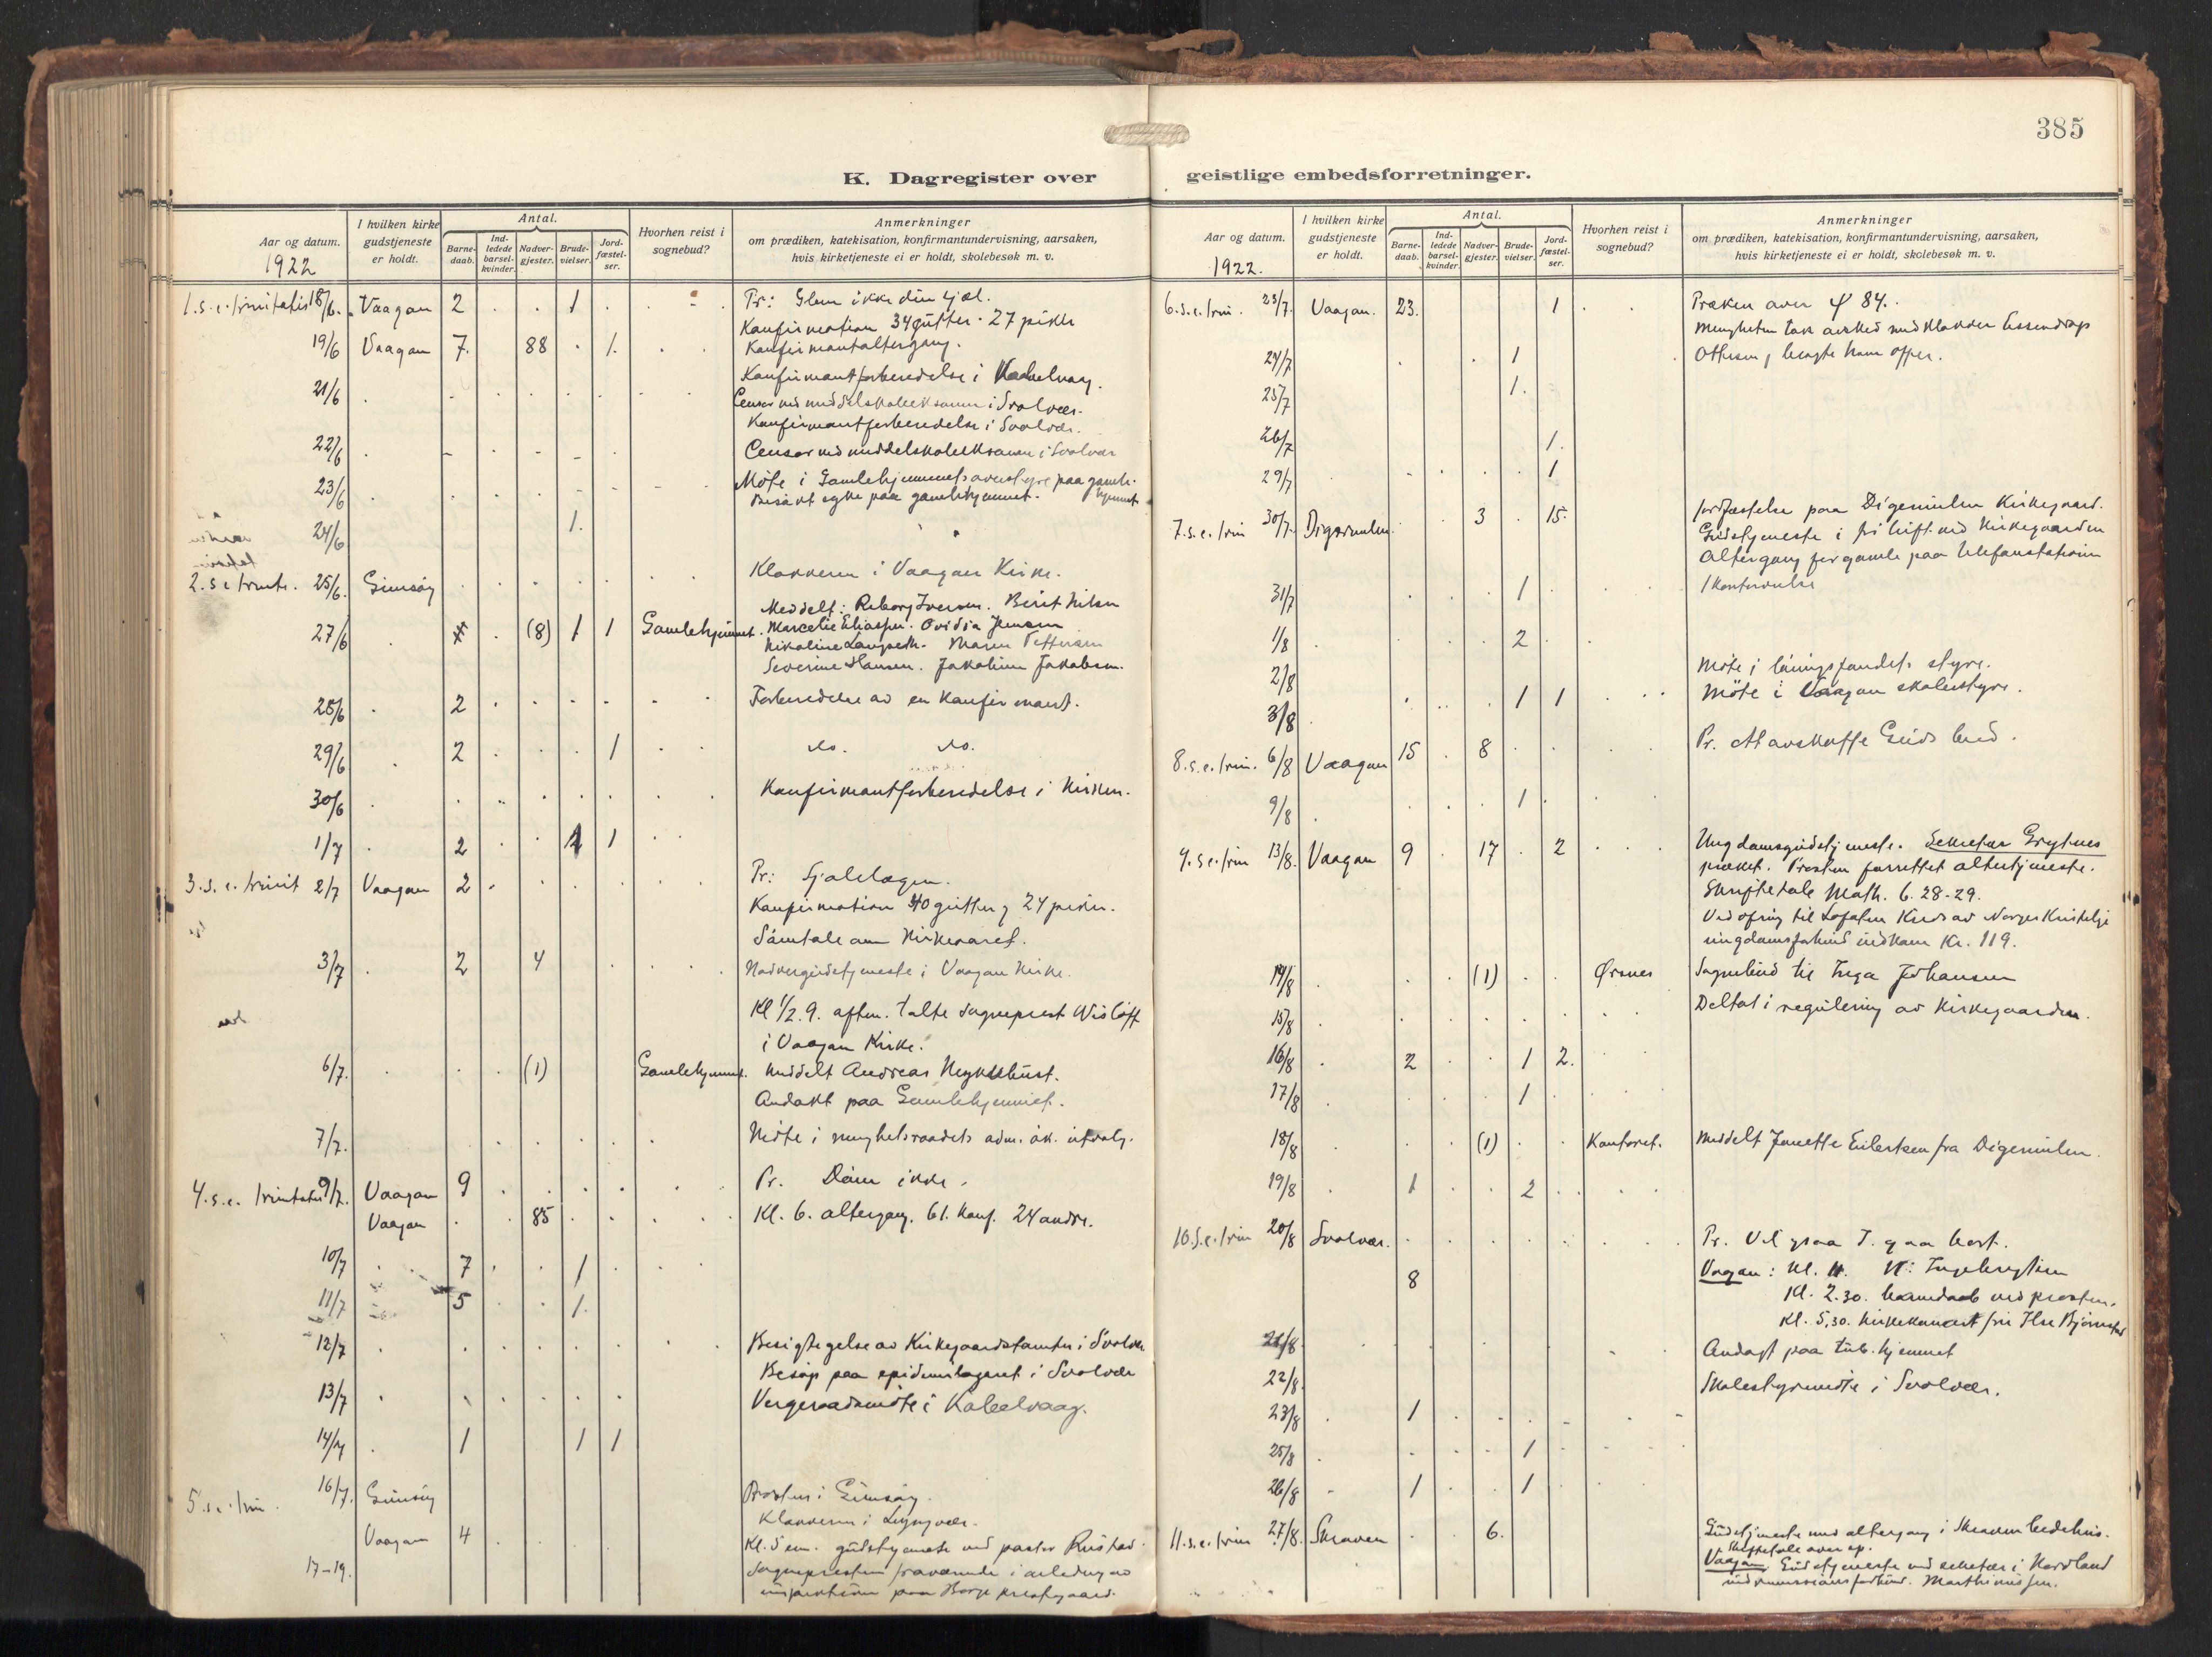 385
K. Dagregister over geistlige embedsforretninger.
Aar og datum. 1922
I hvilken kirke gudstjeneste er holdt.
Antal.
Barne-daab. Ind-ledede barsel-kvinder. Nadver-gjester. Brude-vielser. Jord-fæstel-ser.
Hvorhen reist i sognebud?
Anmerkninger
om prædiken, katekisation, konfirmantundervisning, aarsaken,
hvis kirketjeneste ei er holdt, skolebesøk m. v.
1.s.e. trinitatis 18/6. Vaagan 2 1 Pr: Glem ikke din sjæl.
Konfirmation 34 gutter. 27 piker
19/6 Vaagan 7. 88 1. Konfirmantaltergang.
Konfirmantforberedelse i Kabelvaag.
21/6 Censor ved middelskoleeksamen i Svolvær.
Konfirmantforberedelse i Svolvær.
22/6 Censor ved middelskoleeksamen i Svolvær
23/6 Møte i Gamlehjemmets overstyre paa gamle-
hjemmet
Besøkt syke paa gamlehjemmet.
24/6 1.
2.s.e. trinit. 25/6. Gimsøy Klokkeren i Vaagan Kirke.
Meddelt: Iversen. Berit Nilsen
27/6 (8) 1 1 Gamlehjemmet. Marcelie Eliassen. Ovidia Jensen
Nikoline Langseth. Maren Pettersen
Severine Hansen. Jakobine Jakobsen.
28/6 2 Forberedelse av en konfirmant.
29/6 2 1 do. do.
30/6 Konfirmantforberedelse i kirken.
1/7 2 1 1
3.s.e. trinit 2/7 Vaagan 2 Pr: Sjælelægen.
Konfirmation 40 gutter, 24 piker.
Samtale om
3/7 2 4 Nadvergudstjeneste i Vaagan kirke.
Kl 1/2 9. aften. talte sogneprest Wisløff
i Vaagan Kirke.
6/7. (1) Gamlehjemmet. Meddelt Andreas
Andakt paa Gamlehjemmet.
7/7. Møte i menighetsraadets adm. øk. utvalg.
4.s.e. trinitatis 9/7. Vaagan 9 Pr. Døm ikke.
Vaagan 85 Kl. 6. altergang. 61. konf. 24 andre.
10/7 7 1
11/7 5 1.
12/7 Besigtigelse av Kirkegaardstomter i Svolvær
Besøk paa epidemilasaret i Svolvær
13/7 Vergeraadsmøte i Kabelvaag.
14/7 1 1 1
5.s.e. trin. 16/7. Gimsøy Prosten i Gimsøy.
Klokkeren i Lyngvær.
Vaagan 4 Kl. 5 em. gudstjeneste ved pastor Rustad.
17-19. Sognepresten fraværende i anledning av
inspektion paa Borge prestegaard.
Aar og datum. 1922.
I hvilken kirke gudstjeneste er holdt.
Antal.
Barne-daab. Ind-ledede barsel-kvinder. Nadver-gjester. Brude-vielser. Jord-fæstel-ser.
Hvorhen reist i sognebud?
Anmerkninger
om prædiken, katekisation, konfirmantundervisning, aarsaken,
hvis kirketjeneste ei er holdt, skolebesøk m. v.
6.s.e. trin. 23/7. Vaagan. 23. 1 Præken over ψ 84.
Menigheten tok avsked med klokker Essendrop
Ottesen, bragte ham offer.
24/7 1
25/7 1.
26/7 1.
29/7 1
7.s.e. trin 30/7. Digermulen. 3 15. Jordfæstelse paa Digermulen Kirkegaard.
Gudstjeneste i fri luft ved kirkegaarden
Altergang for gamle paa telefonstationen
31/7 1
1/8 2
2/8 Møte i styre.
3/8 1 1 Møte i Vaagan skolestyre.
8.s.e. trin. 6/8 Vaagan 15 8 Pr. At avskaffe Guds bud.
9/8 1
9.s.e. trin 13/8. Vaagan 9 17 2 Ungdomsgudstjeneste. Sekretær Grytnes
præket. Prosten forrettet altertjeneste.
Skriftetale Math. 6. 28-29.
Ved ofring til Lofoten Kreds av Norges Kristelige
ungdomsforbund indkom Kr. 119.
14/8 (1) Ørsnes Sognebud til Inga Johansen
15/8 Deltat i regulering av Kirkegaarden.
16/8 2 1 2.
17/8 1
18/8 (1) Kontoret. Meddelt Janette Eilertsen fra Digermulen.
19/8 1 2
10.s.e. trin 20/8 Svolvær. Pr. Vil gaa bort.
8 Vaagan: Kl. 11. Ingebrigtsen
Kl. 2.30. barnedaab ved prosten.
Kl. 5,30. kirkekonsert Bjørnstad
21/8 Andagt paa tub. hjemmet
22/8 Skolestyremøte i Svolvær.
23/8 1
25/8 1
26/8 1 1
11.s.e. trin 27/8. Skraaven 6. Gudstjeneste med altergang i Skraaven bedehus.
Skriftetale over
Vaagan. Gudstjeneste ved sekretær i Nordland
indremissionsforbund. Marthinussen.